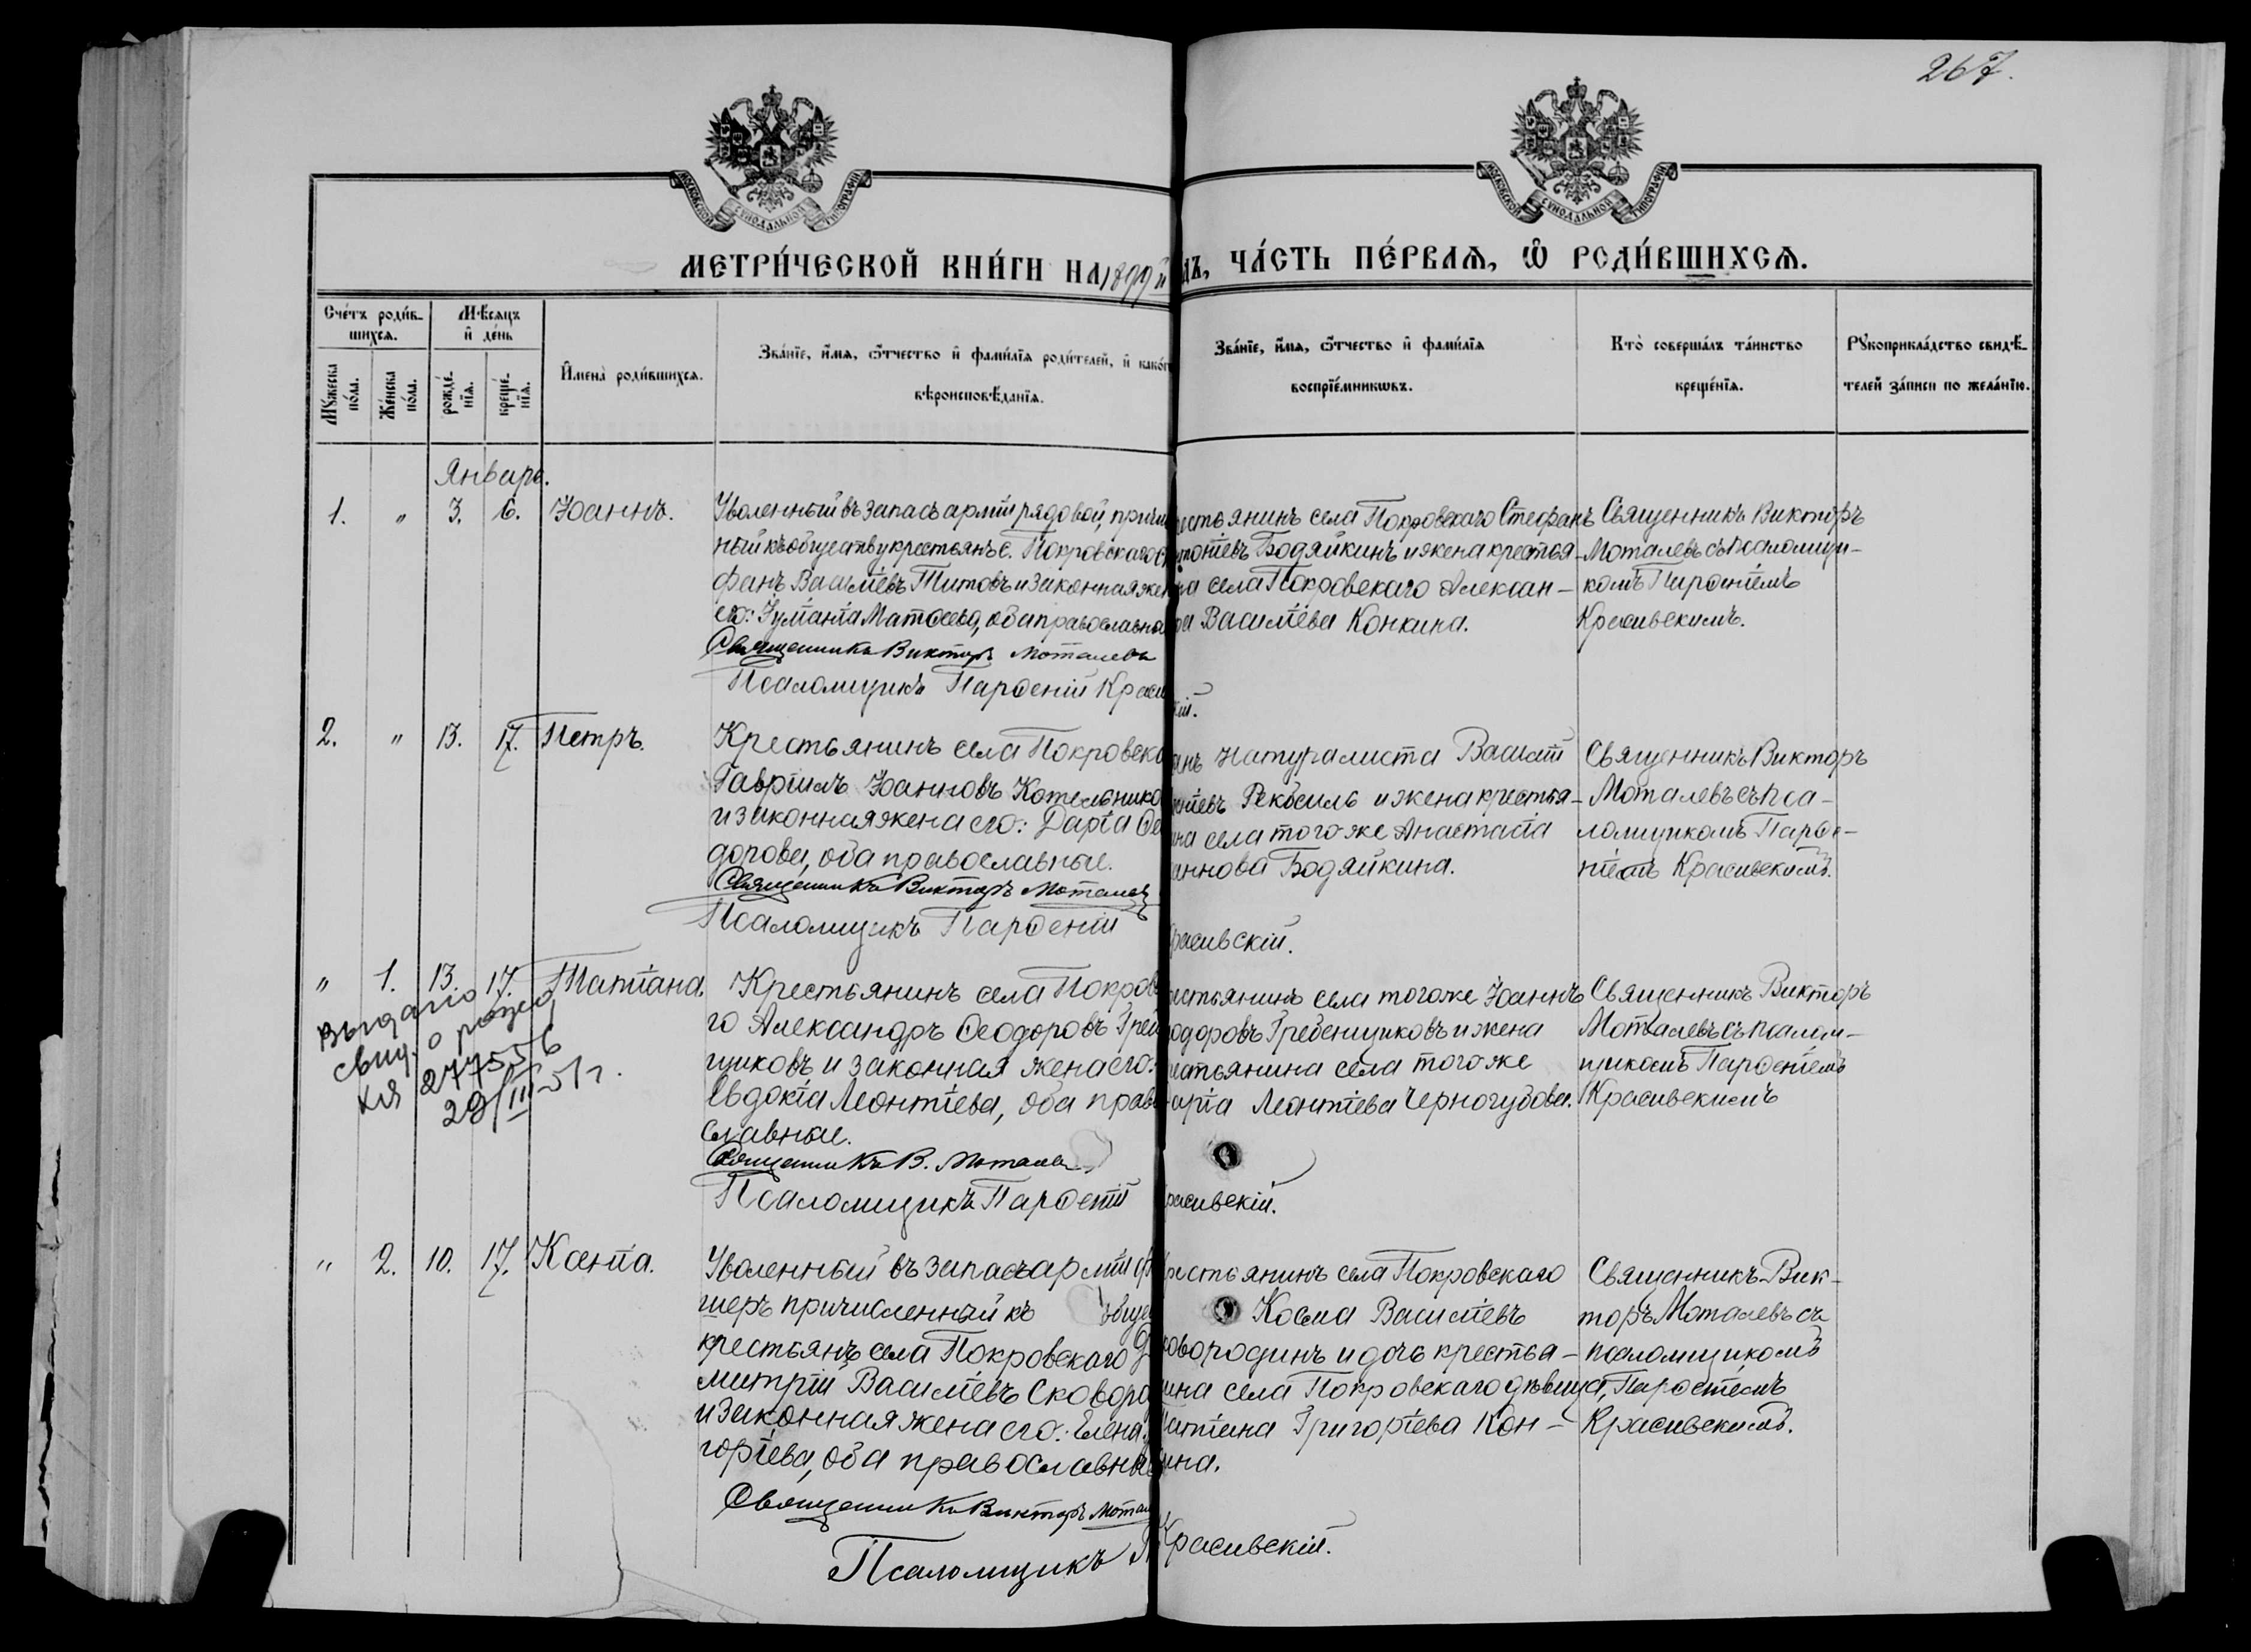 267.
МОСКОВСКОЙ СѴНОДАЛЬНОЙ ТИПОГРАФІИ
МОСКОВСКОЙ СѴНОДАЛЬНОЙ ТИПОГРАФІИ
МЕТРИ́ЧЕСКОЙ КНИ́ГИ НА 1899й
дъ, ЧА́СТЬ ПЕ́РВАѦ, Ѡ҆ РОДИ́ВШИХСѦ.
Сче́тъ роди́в-
шихсѧ.
Мѣ́сѧцъ
и҆ де́нь
Мꙋ́жеска
по́ла.
Же́нска
по́ла.
рожде́-
нїѧ.
креще́-
нїѧ.
И҆мена̀ роди́вшихсѧ.
Зва́нїе, и҆́мѧ, ѻ҆́тчество и҆ фами́лїѧ роди́телей, и҆ како́г
вѣроисповѣ́данїѧ.
Зва́нїе, и҆́мѧ, ѻ҆́тчество и҆ фами́лїѧ
воспрїе́мникѡвъ.
Кто̀ соверша́лъ та́инство
креще́нїѧ.
Рꙋкоприкла́дство свидѣ́-
телей за́писи по жела́нїю.
Январь.
1. " 3. 6. Іоаннъ.
Уволенный въ запасъ арміи рядовой, причи
ный къ обществу крестьянъ с. Покровскаго С
фанъ Васильевъ Титовъ и законная жен
его: Іуліанія Матѳеева, оба православн
Священникъ Викторъ Моталевъ
Псаломщикъ Парѳеній Краси
естьянинъ села Покровскаго Стефанъ
Бодяйкинъ и жена крестья-
на села Покровскаго Алексан-
ра Васильева Конкина.
кій.
Священникъ Викторъ
Моталевъ съ псаломщи-
комъ Парѳеніемъ
Красивскимъ.
2. " 13. 17. Петръ.
Крестьянинъ села Покровска
Гавріилъ Іоанновъ Котельнико
и законная жена его: Дарія Ѳе
дорова, оба православные.
Священникъ Викторъ Моталевъ
Псаломщикъ Парѳеній
анъ натуралиста Василій
и жена крестья-
ина села того же Анастасія
аннова Бодяйкина.
расивскій.
Священникъ Викторъ
Моталевъ съ пса-
ломщикомъ Парѳе-
ніемъ Красивскимъ.
" 1. 13. 17. Татіана.
выдано
свид. о рожд
277556
29/III-51г.
Крестьянинъ села Покров
го Александръ Ѳеодоровъ Гребе
щиковъ и законная жена его:
Евдокія Леонтіева, оба право
славные.
Священникъ В. Моталевъ
Псаломщикъ Парѳеній
естьянинъ села того же Іоаннъ
одоровъ Гребенщиковъ и жена
естьянина села того же
арія Леонтіева Черногубова.
расивскій.
Священникъ Викторъ
Моталевъ съ псалом-
щикомъ Парѳеніемъ
Красивскимъ
" 2. 10. 17. Ксенія.
Уволенный въ запасъ арміи ф
шеръ причисленный къ обще
крестьянъ села Покровскаго Д
митрій Васильевъ Сковоро
и законная жена его: Елена
горіева, оба православны
Священникъ Викторъ Мотал
Псаломщикъ П
рестьянинъ села Покровскаго
Косма Васильевъ
ковородинъ и дочь крестья-
ина села Покровскаго дѣвица,
атіана Григоріева Кон-
ина.
Красивскій.
Священникъ Вик-
торъ Моталевъ съ
псаломщикомъ
Парѳеніемъ
Красивскимъ.